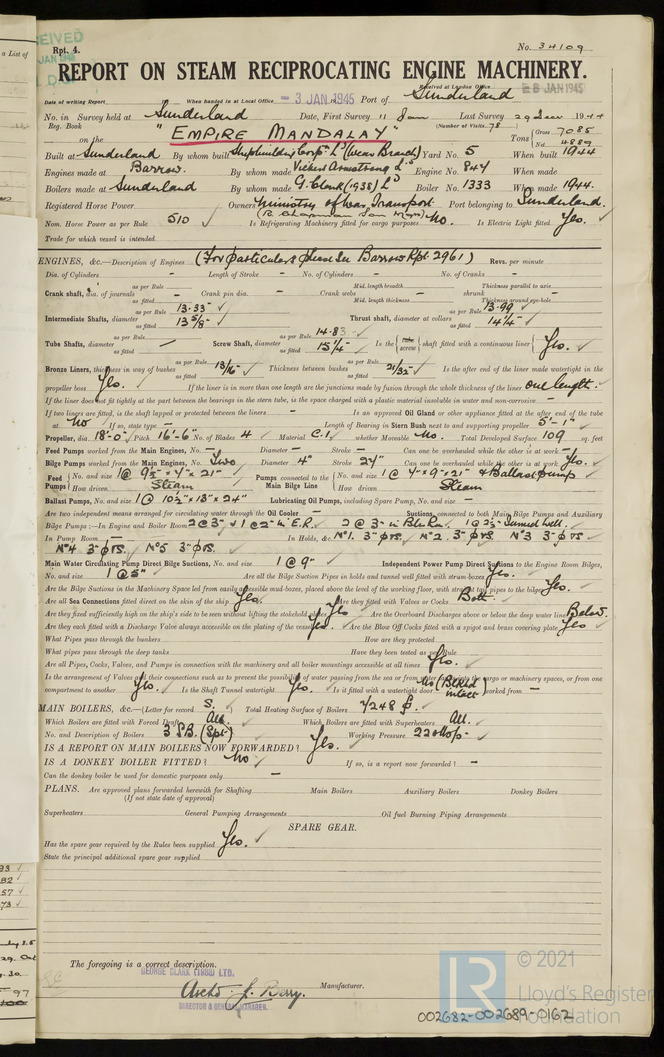 a List of
Rpt. 4.
No. 34109
REPORT ON STEAM RECIPROCATING ENGINE MACHINERY.
Received at London Office
Date of writing Report When handed in at Local Office - 3 JAN 1945 Port of Sunderland
No. in Reg. Book Survey held at Sunderland Date, First Survey 11 Jan Last Survey 29 Dec 1944
(Number of Visits 78)
on the "EMPIRE MANDALAY" Tons Gross 7085 Net 4889
Built at Sunderland By whom built Shipbuilding Corpn Ld (Wear Branch) Yard No. 5 When built 1944
Engines made at Barrow. By whom made Vickers Armstrong Ld Engine No. 844 When made
Boilers made at Sunderland By whom made G. Clark (1938) Ld Boiler No. 1333 When made 1944.
Registered Horse Power Owners Ministry of War Transport Port belonging to Sunderland.
Nom. Horse Power as per Rule 510 Is Refrigerating Machinery fitted for cargo purposes No. Is Electric Light fitted Yes.
Trade for which vessel is intended
ENGINES, &c.—Description of Engines (For particulars please see Barrow Rpt. 2961) Revs. per minute
Dia. of Cylinders - Length of Stroke - No. of Cylinders - No. of Cranks -
Crank shaft, dia. of journals as per Rule as fitted - Crank pin dia. - Crank webs Mid. length breadth Mid. length thickness - shrunk Thickness parallel to axis Thickness around eye-hole
Intermediate Shafts, diameter as per Rule 13.33" as fitted 13 5/8" Thrust shaft, diameter at collars as per Rule 13.99 as fitted 14 1/4"
Tube Shafts, diameter as per Rule as fitted - Screw Shaft, diameter as per Rule 14.83 as fitted 15 1/4" Is the tube screw shaft fitted with a continuous liner Yes.
Bronze Liners, thickness in way of bushes as per Rule as fitted 13/16" Thickness between bushes as per Rule as fitted 21/32" Is the after end of the liner made watertight in the
propeller boss Yes. If the liner is in more than one length are the junctions made by fusion through the whole thickness of the liner one length.
If the liner does not fit tightly at the part between the bearings in the stern tube, is the space charged with a plastic material insoluble in water and non-corrosive -
If two liners are fitted, is the shaft lapped or protected between the liners - Is an approved Oil Gland or other appliance fitted at the after end of the tube
No If so, state type - Length of Bearing in Stern Bush next to and supporting propeller 5'-1"
Propeller, dia. 18'-0" Pitch 16'-6" No. of Blades 4 Material C.I. whether Moveable No. Total Developed Surface 109 sq. feet
Feed Pumps worked from the Main Engines, No. - Diameter - Stroke - Can one be overhauled while the other is at work -
Bilge Pumps worked from the Main Engines, No. Two Diameter 4" Stroke 24" Can one be overhauled while the other is at work Yes.
Feed Pumps No. and size 1 @ 9 1/2" x 7" x 21" Pumps connected to the Main Bilge Line No. and size 1 @ 7" x 9" x 21" & Ballast pump
How driven Steam How driven Steam
Ballast Pumps, No. and size 1 @ 10 1/2" x 13" x 24" Lubricating Oil Pumps, including Spare Pump, No. and size -
Are two independent means arranged for circulating water through the Oil Cooler - Suctions, connected to both Main Bilge Pumps and Auxiliary
Bilge Pumps :—In Engine and Boiler Room 2 @ 3" & 1 @ 2" in E.R. 2 @ 3" in Blr Rm. 1 @ 2 1/2" Tunnel Well.
In Pump Room - In Holds, &c. No 1. 3" P&S. No 2. 3" P&S No 3 3" P&S
No 4 3" P&S. No 5 3" P&S.
Main Water Circulating Pump Direct Bilge Suctions, No. and size 1 @ 9" Independent Power Pump Direct Suctions to the Engine Room Bilges,
No. and size 1 @ 5" Are all the Bilge Suction Pipes in holds and tunnel well fitted with strum-boxes Yes.
Are the Bilge Suctions in the Machinery Space led from easily accessible mud-boxes, placed above the level of the working floor, with straight tail pipes to the bilges Yes.
Are all Sea Connections fitted direct on the skin of the ship Yes. Are they fitted with Valves or Cocks Both
Are they fixed sufficiently high on the ship's side to be seen without lifting the stokehold plates Yes Are the Overboard Discharges above or below the deep water line Below.
Are they each fitted with a Discharge Valve always accessible on the plating of the vessel Yes. Are the Blow Off Cocks fitted with a spigot and brass covering plate Yes
What Pipes pass through the bunkers How are they protected
What pipes pass through the deep tanks Have they been tested as per Rule
Are all Pipes, Cocks, Valves, and Pumps in connection with the machinery and all boiler mountings accessible at all times Yes.
Is the arrangement of Valves and their connections such as to prevent the possibility of water passing from the sea or from water ballast tanks to cargo or machinery spaces, or from one
compartment to another Yes. Is the Shaft Tunnel watertight Yes. Is it fitted with a watertight door worked from -
MAIN BOILERS, &c.—(Letter for record S. Total Heating Surface of Boilers 7248
Which Boilers are fitted with Forced Draft All. Which Boilers are fitted with Superheaters All.
No. and Description of Boilers 3 S.B. (Spt) Working Pressure 220
IS A REPORT ON MAIN BOILERS NOW FORWARDED? Yes.
IS A DONKEY BOILER FITTED? No If so, is a report now forwarded? -
Can the donkey boiler be used for domestic purposes only -
PLANS. Are approved plans forwarded herewith for Shafting Main Boilers Auxiliary Boilers Donkey Boilers
(If not state date of approval)
Superheaters General Pumping Arrangements Oil fuel Burning Piping Arrangements
SPARE GEAR.
Has the spare gear required by the Rules been supplied Yes.
State the principal additional spare gear supplied
The foregoing is a correct description.
GEORGE CLARK (1938) LTD.
Manufacturer.
DIRECTOR & GENERAL MANAGER.
LR © 2021
Lloyd's Register
Foundation
002682-002689-0162